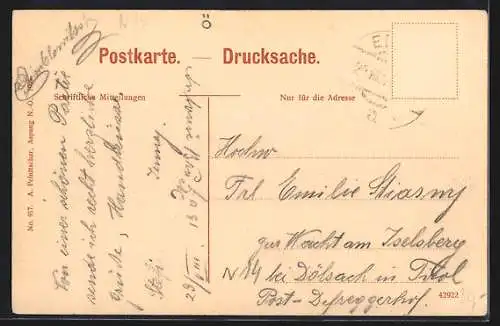 Postkarte. — Drucksache.
Schriftliche Mitteilungen
Nur für die Adresse
No. 957. A. Pelnitschar, Aspang N.-Ö.
Von einer schönen Partie
sende ich recht herzliche
Grüße, Handküsse
23/VIII. 1907
Hochw
Frl Emilie Stiasny
zur Wacht am Iselsberg
N 14 bei Dölsach in Tirol
Post-Defreggerhof.
42922